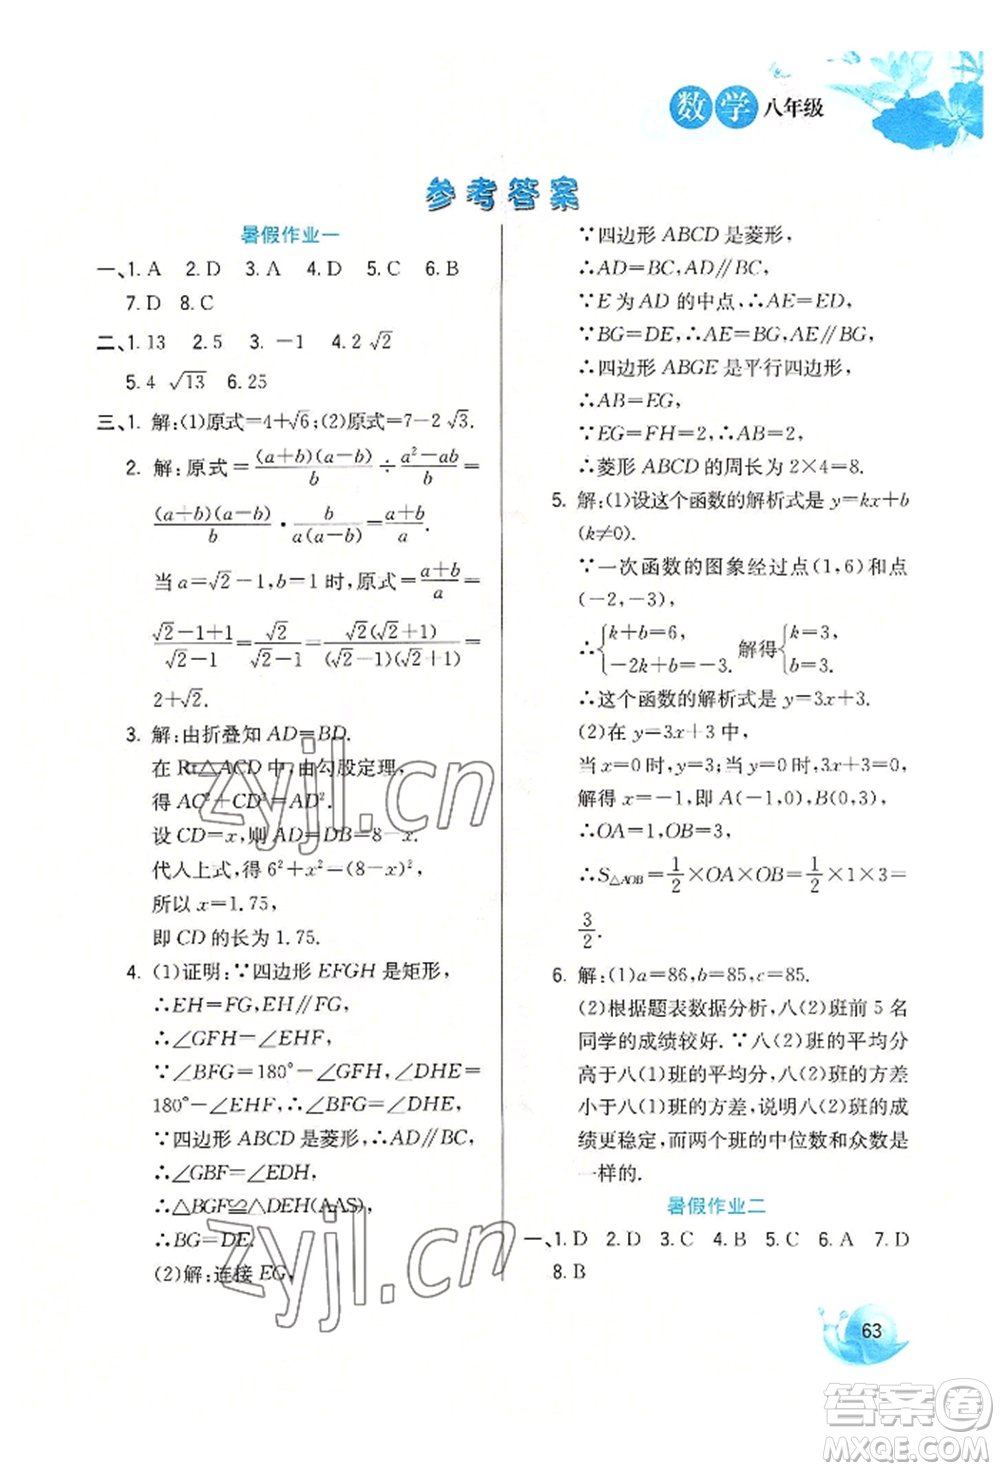 数学 八年级
参考答案
暑假作业一
一、1. A 2. D 3. A 4. D 5. C 6. B
7. D 8. C
二、1. 13 2. 5 3. −1 4. 2√2
5. 4 √13 6. 25
三、1. 解:(1)原式=4+√6;(2)原式=7−2√3.
2. 解:原式=(a+b)(a−b)/b÷(a²−ab)/b=
(a+b)(a−b)/b·b/a(a−b)=(a+b)/a.
当a=√2−1,b=1时,原式=(a+b)/a=
(√2−1+1)/(√2−1)=√2/(√2−1)=√2(√2+1)/(√2−1)(√2+1)=
2+√2.
3. 解:由折叠知AD=BD.
在Rt△ACD中,由勾股定理,
得AC²+CD²=AD².
设CD=x,则AD=DB=8−x.
代入上式,得6²+x²=(8−x)²,
所以x=1.75,
即CD的长为1.75.
4. (1)证明:∵四边形EFGH是矩形,
∴EH=FG,EH∥FG,
∴∠GFH=∠EHF.
∵∠BFG=180°−∠GFH,∠DHE=
180°−∠EHF,∴∠BFG=∠DHE,
∵四边形ABCD是菱形,∴AD∥BC,
∴∠GBF=∠EDH,
∴△BGF≌△DEH(AAS),
∴BG=DE.
(2)解:连接EG,
∵四边形ABCD是菱形,
∴AD=BC,AD∥BC,
∵E为AD的中点,∴AE=ED,
∵BG=DE,∴AE=BG,AE∥BG,
∴四边形ABGE是平行四边形,
∴AB=EG,
∵EG=FH=2,∴AB=2,
∴菱形ABCD的周长为2×4=8.
5. 解:(1)设这个函数的解析式是y=kx+b
(k≠0).
∵一次函数的图象经过点(1,6)和点
(−2,−3),
∴{k+b=6, −2k+b=−3. 解得{k=3, b=3.
∴这个函数的解析式是y=3x+3.
(2)在y=3x+3中,
当x=0时,y=3;当y=0时,3x+3=0,
解得x=−1,即A(−1,0),B(0,3)
∴OA=1,OB=3,
∴S△AOB=1/2×OA×OB=1/2×1×3=
3/2.
6. 解:(1)a=86,b=85,c=85.
(2)根据题表数据分析,八(2)班前5名
同学的成绩较好.∵八(2)班的平均分
高于八(1)班的平均分,八(2)班的方差
小于八(1)班的方差,说明八(2)班的成
绩更稳定,而两个班的中位数和众数是
一样的.
暑假作业二
一、1. D 2. D 3. C 4. B 5. C 6. A 7. D
8. B
63
zyjl.cn
zyjl.cn
答案圈
MXQE.COM